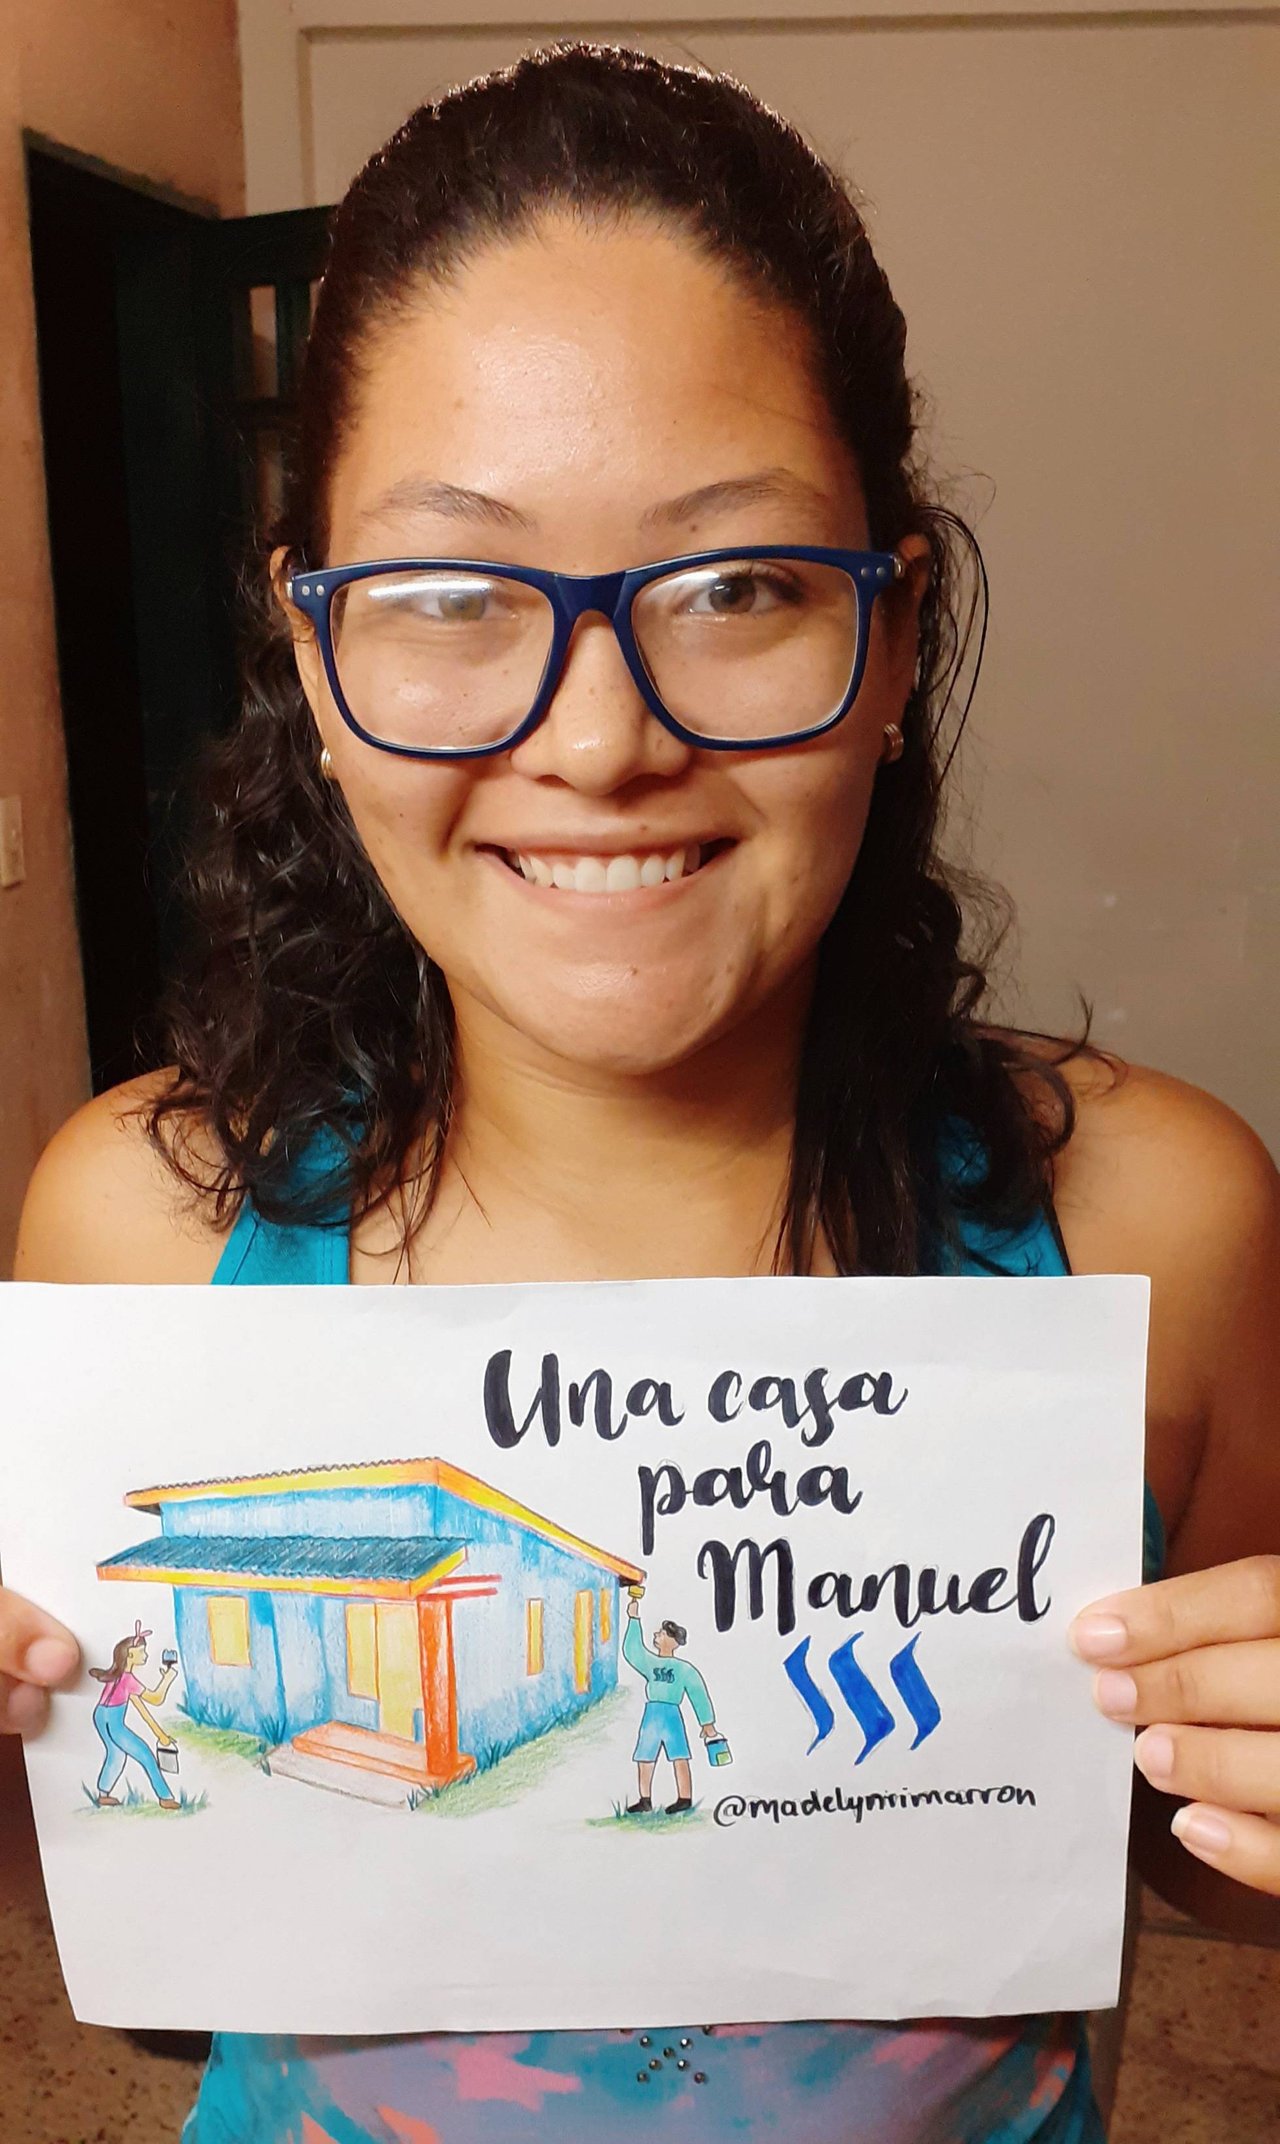 Una casa
para
Manuel
@madelynrimarron